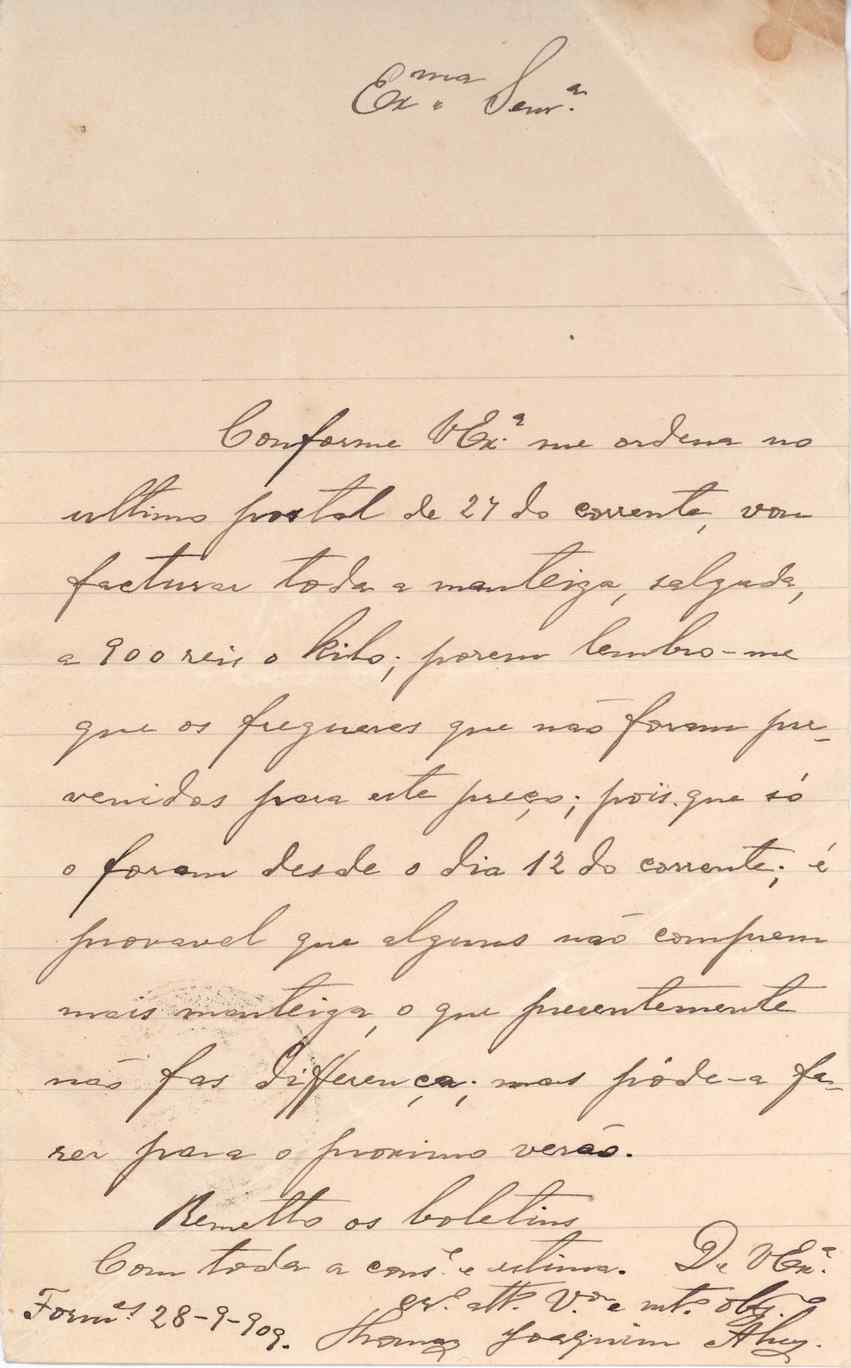 Exma Senrª
Conforme VExª me ordena no
ultimo postal de 27 do corrente, vou
facturar toda a manteiga, salgada,
a 900 reis o kilo; porem lembro-me
que os freguezes que não foram pre-
venidos para este preço; pois que só
o foram desde o dia 12 do corrente; é
provavel que alguns não comprem
mais manteiga, o que presentemente
não fas differença; mas póde-a fa-
zer para o proximo verão.
Remetto os boletins
Com toda a consª e estima. De VExª
crº attº Vor e mtº obrgº
Fornos 28-9-909. Thomaz Joaquim